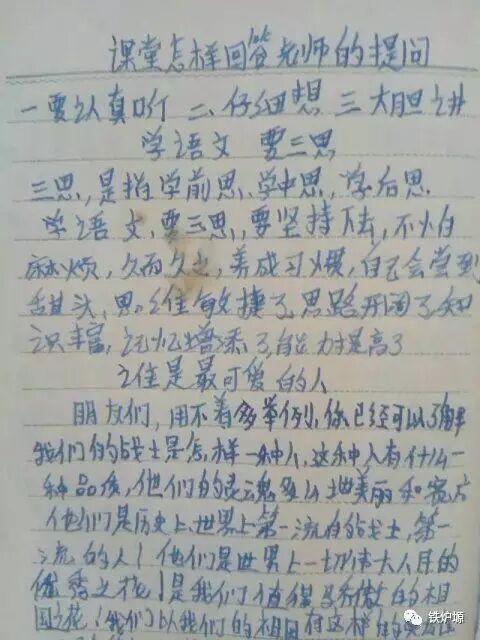 课堂怎样回答老师的提问
一要认真听 二、仔细想 三大胆讲
学语文 要三思
三思,是指学前思、学中思,学后思
学语文,要三思,要坚持下去,不怕
麻烦,久而久之,养成习惯,自己会尝到
甜头,思维敏捷了,思路开阔了,知
识丰富,记忆增添了,能力提高了
谁是最可爱的人
朋友们,用不着多举例,你已经可以了解
我们的战士是怎样一种人,这种人有什么一
种品质,他们的灵魂多么地美丽和宽广
他们是历史上、世界上第一流的战士,第一
流的人!他们是世界上一切伟大人民的
优秀之花!是我们值得骄傲的祖
国之花!我们以我们的祖国有这样的
铁炉塬